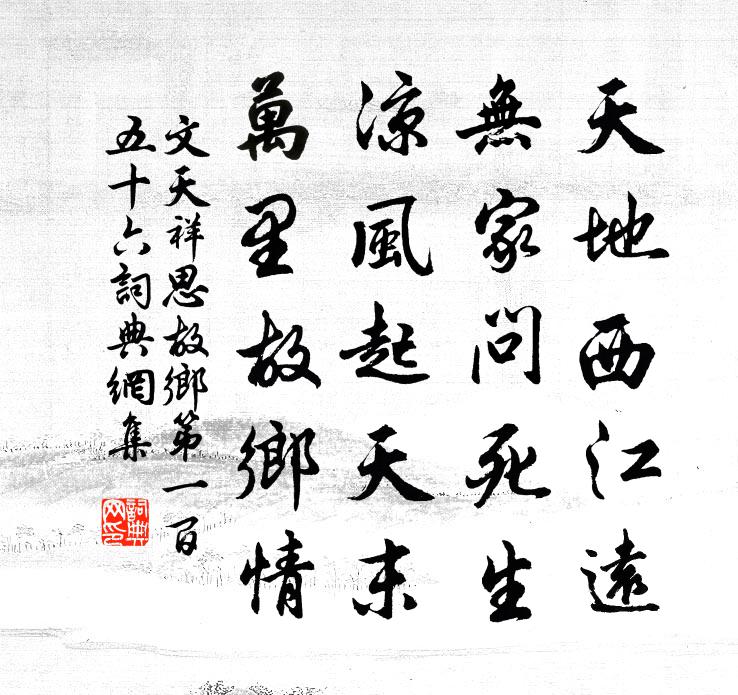 天地西江遠
無家問死生
涼風起天末
萬里故鄉情
文天祥思故鄉第一百
五十六詞典網集
詞典
网印